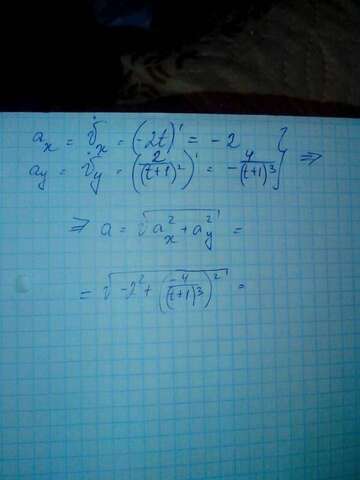 aₓ = v̇ₓ = (-2t)' = -2 } ⇒
a_y = v̇_y = (2/(t+1)²)' = -4/(t+1)³
⇒ a = √(aₓ² + a_y²) =
= √(-2² + (-4/(t+1)³)²) =